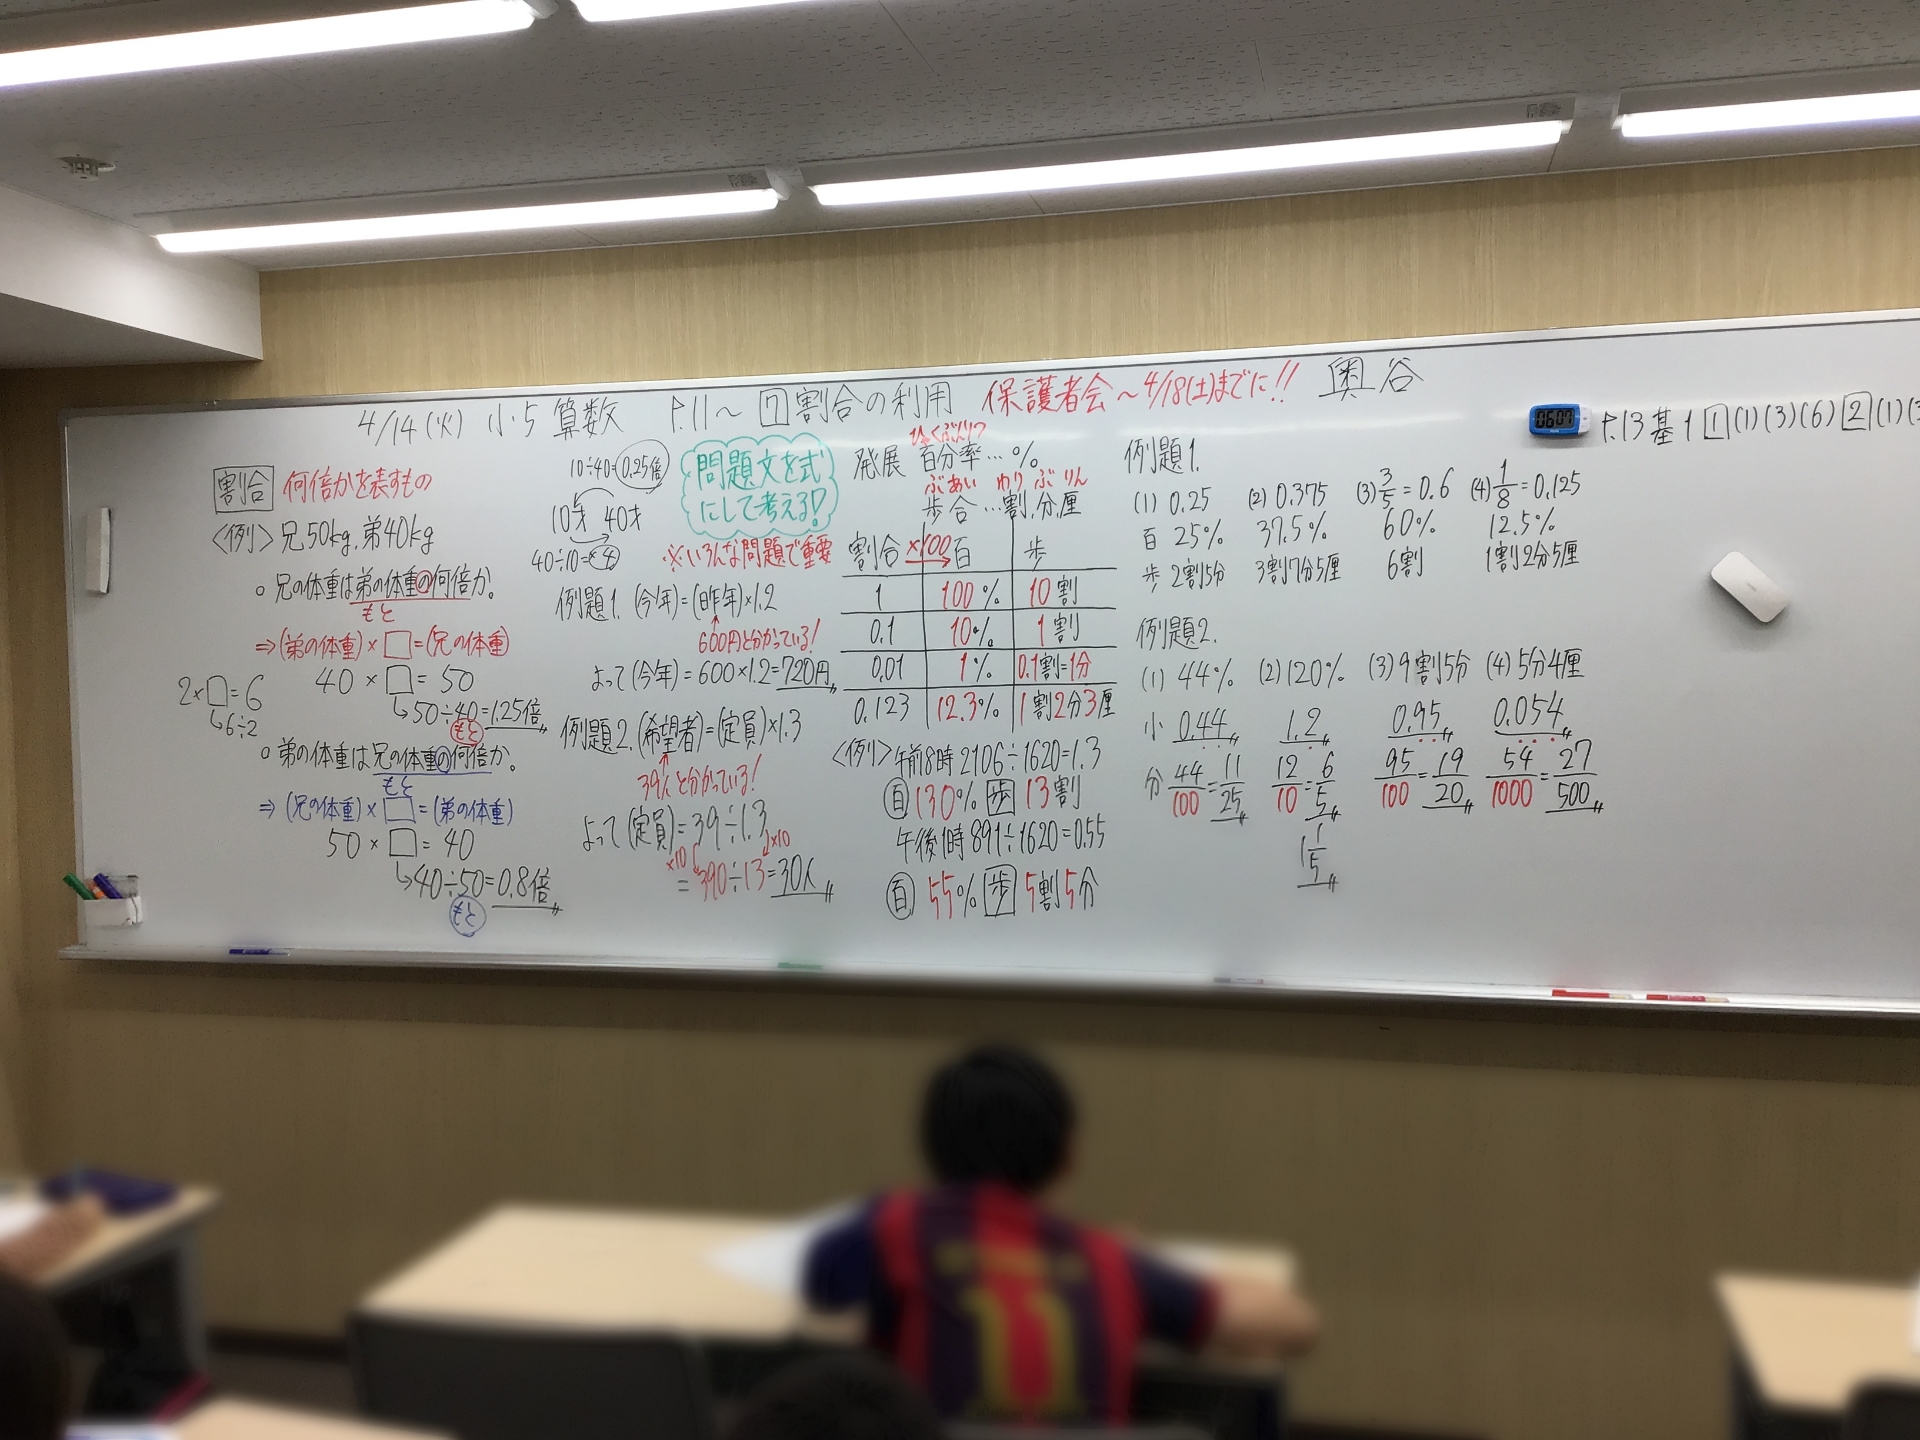 4/14(火) 小5 算数 P.11〜 7 割合の利用 保護者会〜4/18(土)までに!! 奥谷
割合 何倍かを表すもの
<例> 兄50kg, 弟40kg
○ 兄の体重は弟の体重の何倍か。
もと
⇒(弟の体重)×□=(兄の体重)
40×□=50
2×□=6
↳6÷2
↳50÷40=1.25倍
もと
○ 弟の体重は兄の体重の何倍か。
もと
⇒(兄の体重)×□=(弟の体重)
50×□=40
↳40÷50=0.8倍
もと
10÷40=0.25倍
10才 40才
40÷10=×4
問題文を式
にして考える!
※いろんな問題で重要
例題1. (今年)=(昨年)×1.2
600円と分かっている!
よって(今年)=600×1.2=720円
例題2. (希望者)=(定員)×1.3
39人と分かっている!
よって(定員)=39÷1.3
×10 ×10
=390÷13=30人
ひゃくぶんりつ
発展 百分率…%
ぶあい わり ぶ りん
歩合…割,分,厘
割合 ×100 百 歩
1 100% 10割
0.1 10% 1割
0.01 1% 0.1割=1分
0.123 12.3% 1割2分3厘
<例>午前8時 2106÷1620=1.3
百 130% 歩 13割
午後1時 891÷1620=0.55
百 55% 歩 5割5分
例題1.
(1) 0.25 (2) 0.375 (3) 3/5=0.6 (4) 1/8=0.125
百 25% 37.5% 60% 12.5%
歩 2割5分 3割7分5厘 6割 1割2分5厘
例題2.
(1) 44% (2) 120% (3) 9割5分 (4) 5分4厘
小 0.44 1.2 0.95 0.054
分 44/100=11/25 12/10=6/5 95/100=19/20 54/1000=27/500
1 1/5
0607
P.13 基1 1 (1)(3)(6) 2 (1)(3
11